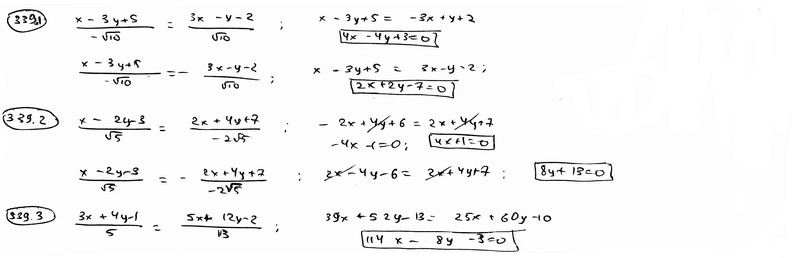 339.1 (x - 3y + 5)/(-√10) = (3x - y - 2)/√10 ; x - 3y + 5 = -3x + y + 2
4x - 4y + 3 = 0
(x - 3y + 5)/(-√10) = - (3x - y - 2)/√10 ; x - 3y + 5 = 3x - y - 2 ;
2x + 2y - 7 = 0
339.2 (x - 2y - 3)/√5 = (2x + 4y + 7)/(-2√5) ; - 2x + 4y + 6 = 2x + 4y + 7
-4x - 1 = 0 ; 4x + 1 = 0
(x - 2y - 3)/√5 = - (2x + 4y + 7)/(-2√5) ; 2x - 4y - 6 = 2x + 4y + 7 ; 8y + 13 = 0
339.3 (3x + 4y - 1)/5 = (5x + 12y - 2)/13 ; 39x + 52y - 13 = 25x + 60y - 10
114x - 8y - 3 = 0